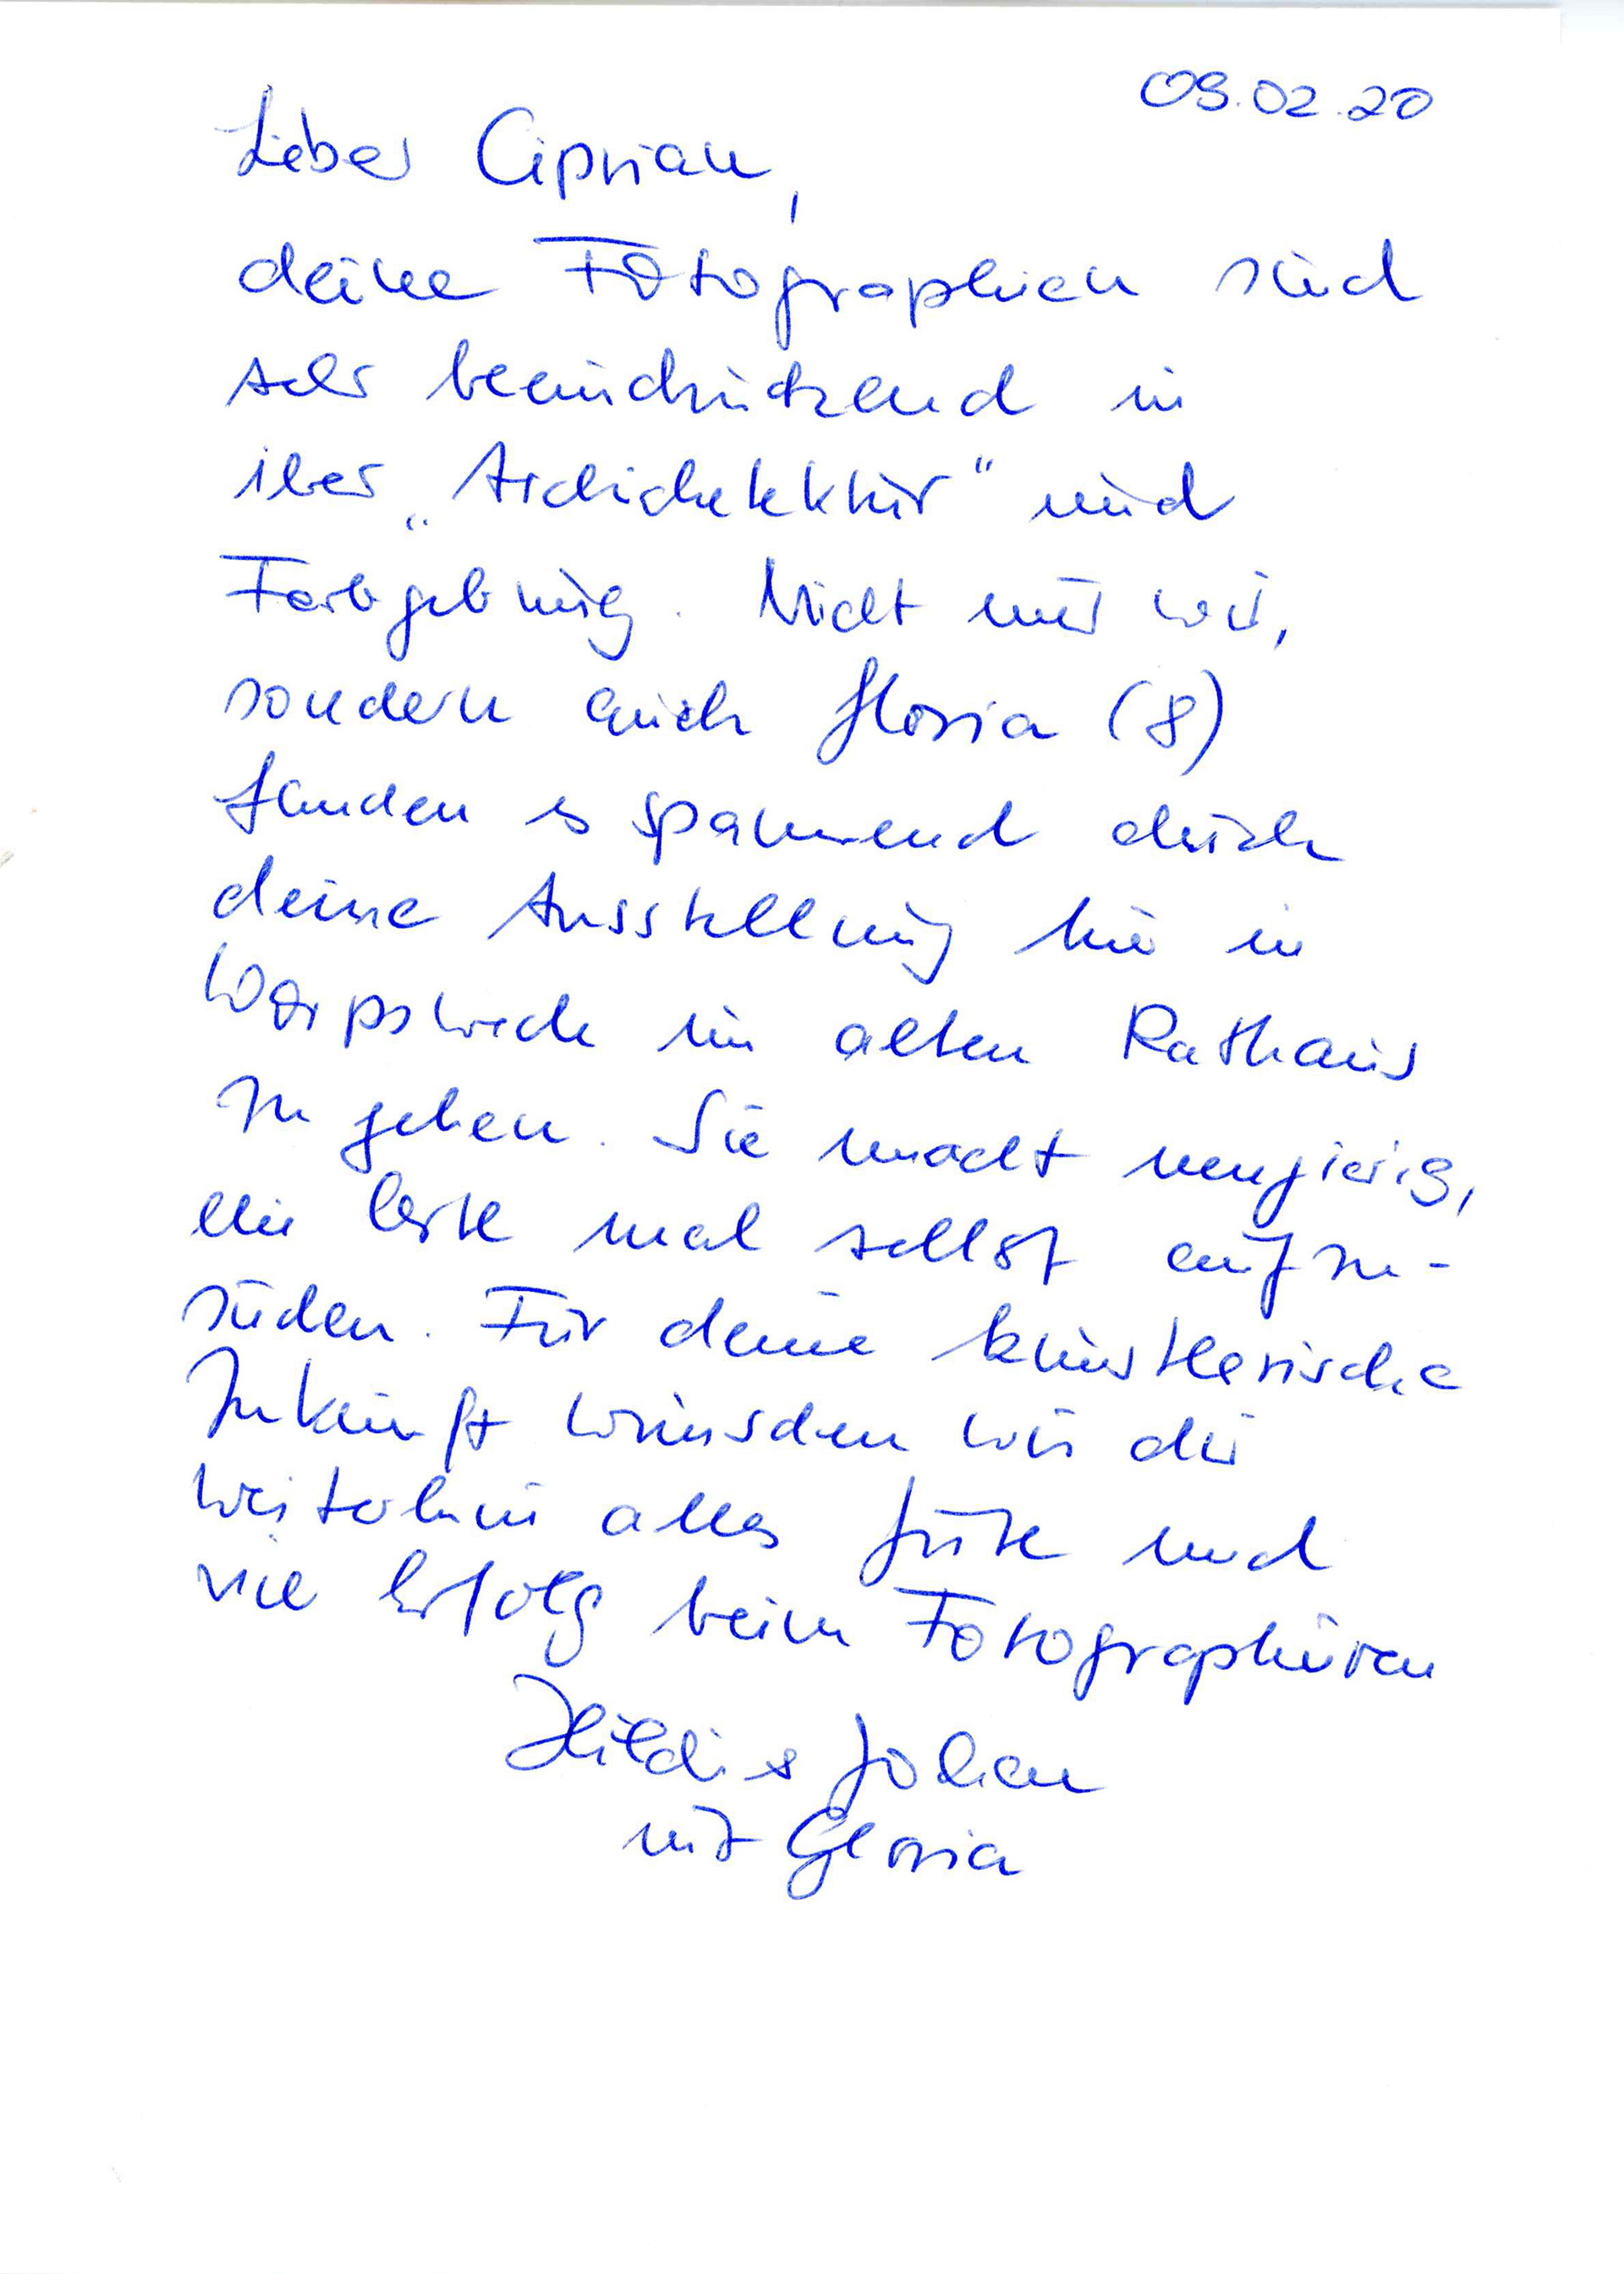 09.02.20
Lieber Ciprian,
deine Fotographien sind
sehr beeindruckend in
ihrer „Architektur“ und
Farbgebung. Nicht nur wir,
sondern auch Gloria (8)
fanden es spannend durch
deine Ausstellung hier in
Worpswede im alten Rathaus
zu gehen. Sie macht neugierig,
die Orte mal selbst aufzu-
suchen. Für deine künstlerische
Zukunft wünschen wir dir
weiterhin alles Gute und
viel Erfolg beim Fotographieren
Hildi &
mit Gloria